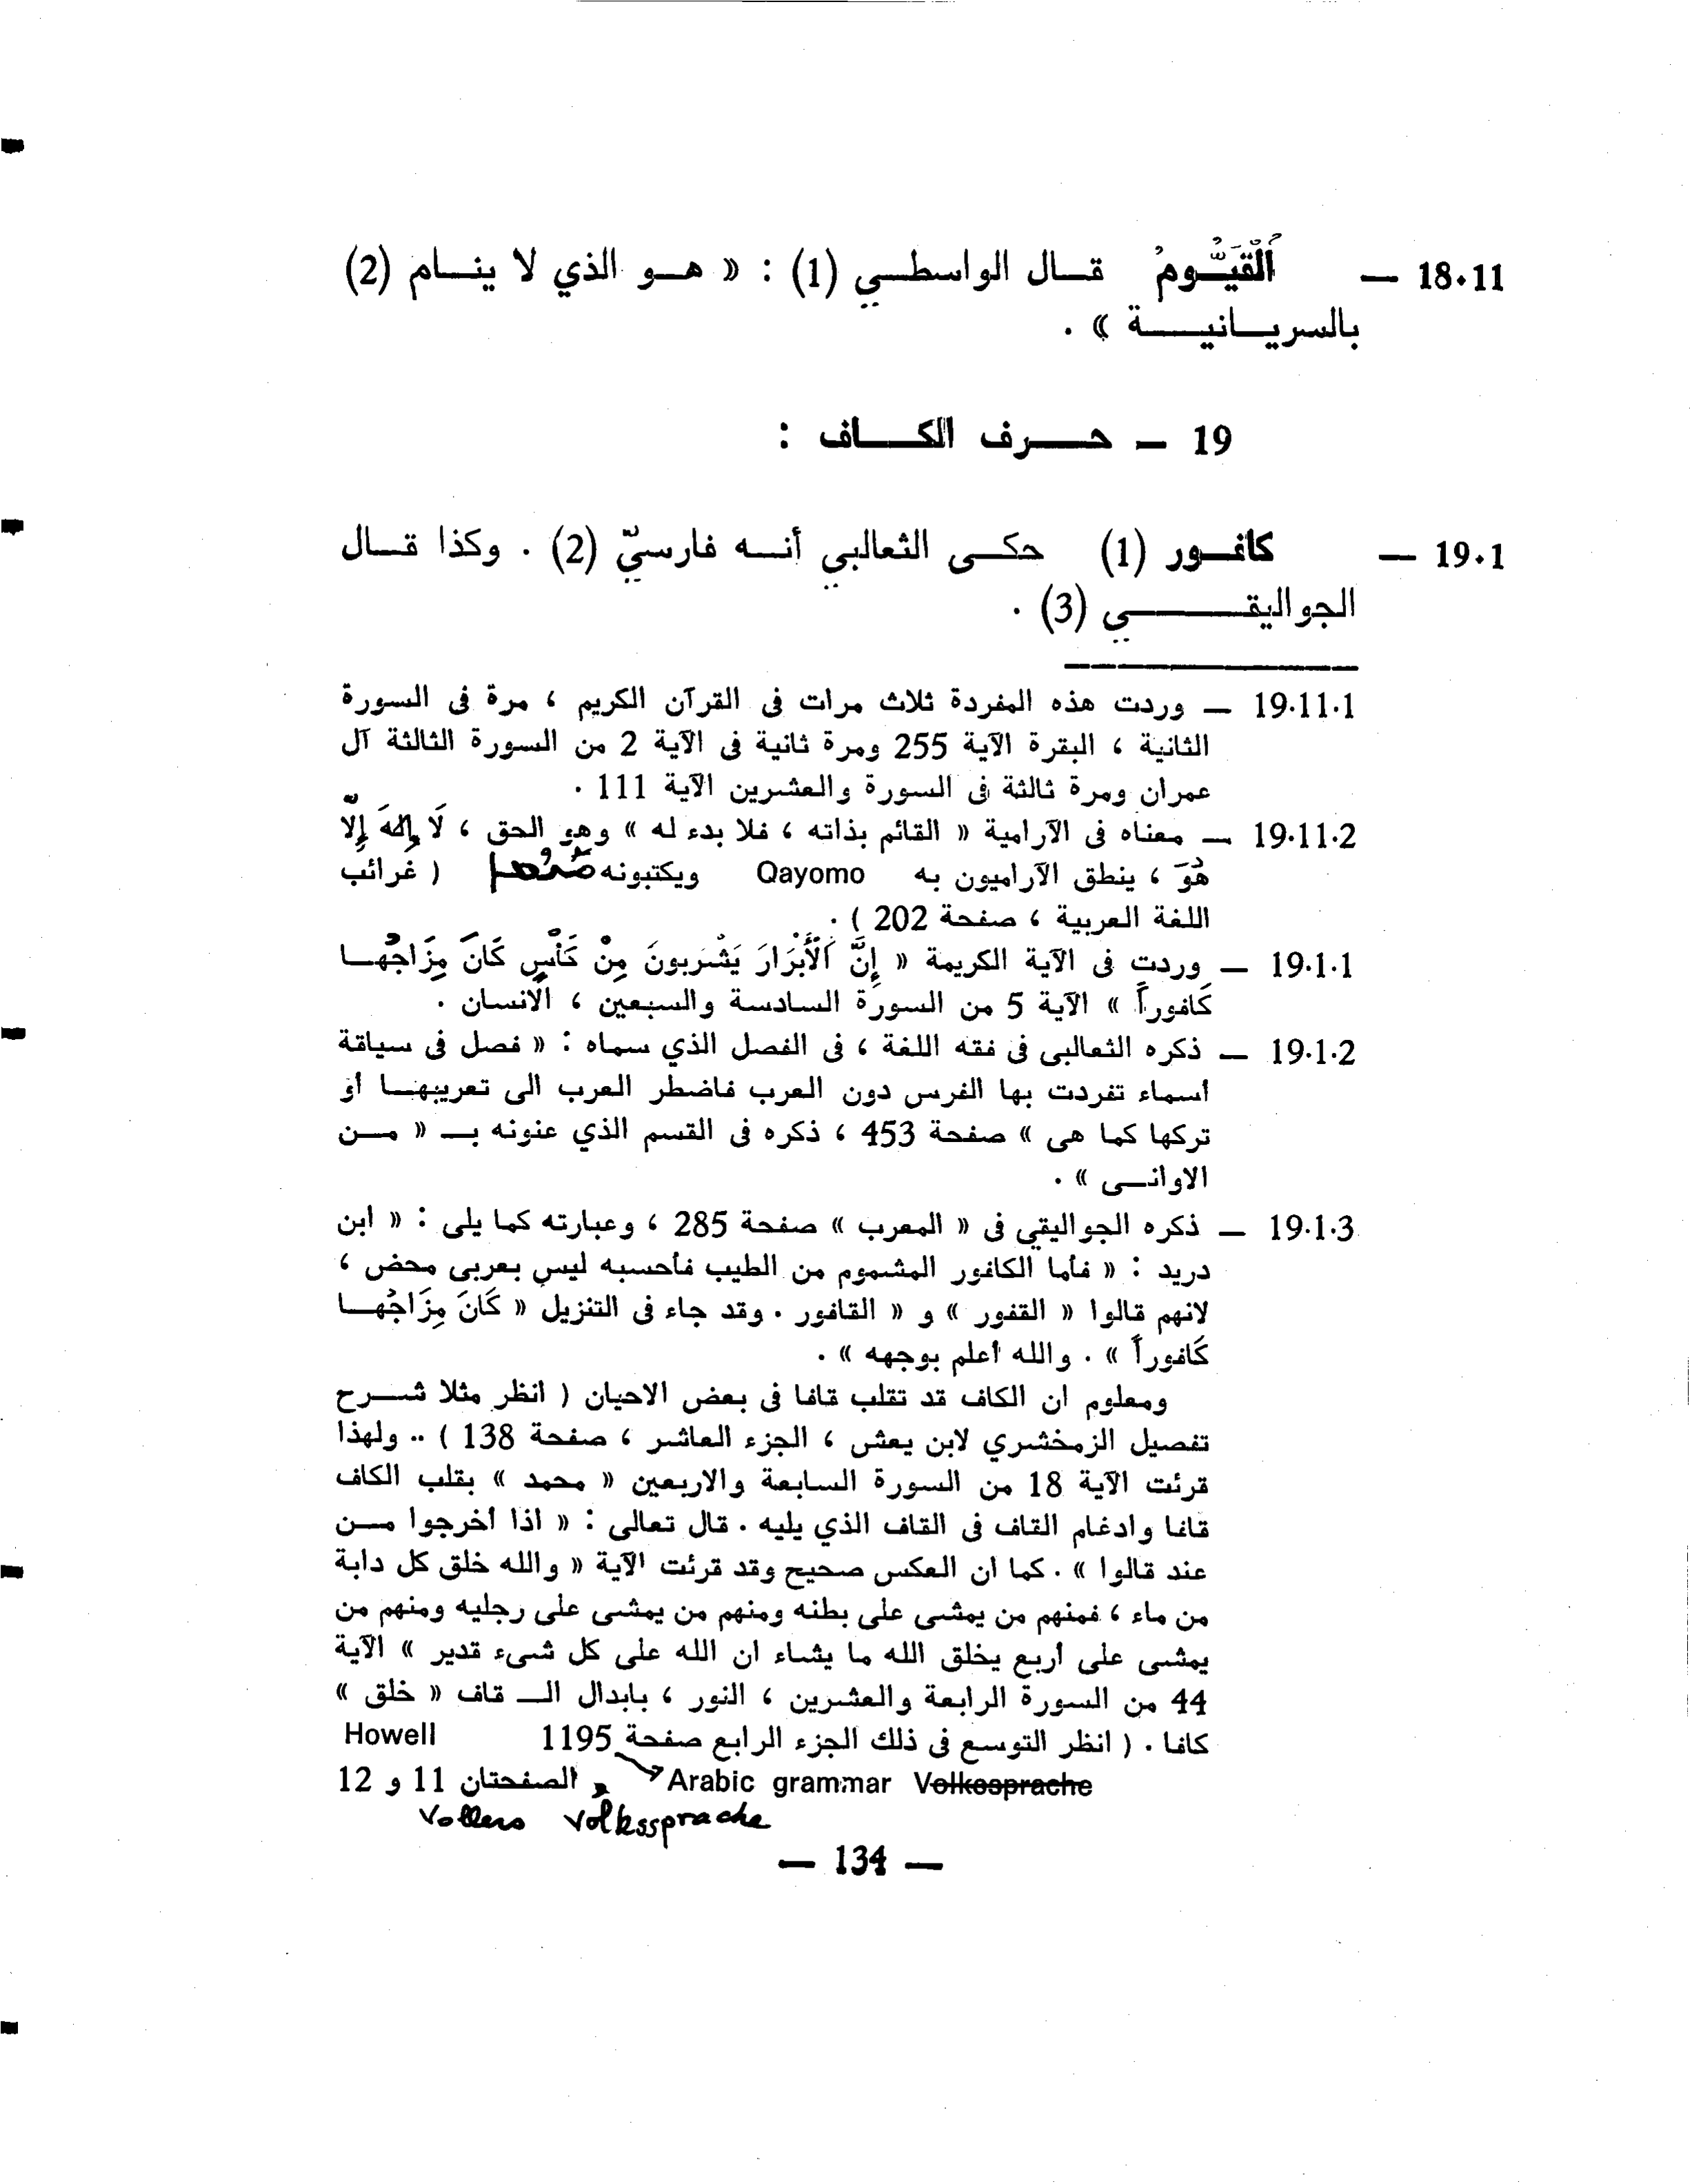 18.11 — اَلْقَيُّومُ قـال الواسطـي (1) : « هـو الذي لا ينـام (2)
بالسريـانيـة » .
19 — حـرف الكـاف :
19.1 — كافـور (1) حكـى الثعالبي أنـه فارسيّ (2) . وكذا قـال
الجواليقـي (3) .
19.11.1 — وردت هذه المفردة ثلاث مرات فى القرآن الكريم ، مرة فى السورة
الثانية ، البقرة الآية 255 ومرة ثانية فى الآية 2 من السورة الثالثة آل
عمران ومرة ثالثة فى السورة والعشرين الآية 111 .
19.11.2 — معناه فى الآرامية « القائم بذاته ، فلا بدء له » وهو الحق ، لَا إِلهَ إِلَّا
هُوَ ، ينطق الآراميون به Qayomo ويكتبونه ( غرائب
اللغة العربية ، صفحة 202 ) .
19.1.1 — وردت فى الآية الكريمة « إِنَّ اَلْأَبْرَارَ يَشْرَبونَ مِنْ كَأْسٍ كَانَ مِزَاجُهـا
كَافوراً » الآية 5 من السورة السادسة والسبعين ، الانسان .
19.1.2 — ذكره الثعالبى فى فقه اللغة ، فى الفصل الذي سماه : « فصل فى سياقة
اسماء تفردت بها الفرس دون العرب فاضطر العرب الى تعريبهـا أو
تركها كما هى » صفحة 453 ، ذكره فى القسم الذي عنونه بـ « مـن
الاوانـى » .
19.1.3 — ذكره الجواليقي فى « المعرب » صفحة 285 ، وعبارته كما يلى : « ابن
دريد : « فأما الكافور المشموم من الطيب فأحسبه ليس بعربى محض ،
لانهم قالوا « القفور » و « القافور . وقد جاء فى التنزيل « كَانَ مِزَاجُهـا
كَافوراً » . والله أعلم بوجهه » .
ومعلوم ان الكاف قد تقلب قافا فى بعض الاحيان ( انظر مثلا شـرح
تفصيل الزمخشري لابن يعش ، الجزء العاشر ، صفحة 138 ) .. ولهذا
قرئت الآية 18 من السورة السابعة والاربعين « محمد » بقلب الكاف
قافا وادغام القاف فى القاف الذي يليه . قال تعالى : « اذا أخرجوا مـن
عند قالوا » . كما ان العكس صحيح وقد قرئت الآية « والله خلق كل دابة
من ماء ، فمنهم من يمشى على بطنه ومنهم من يمشى على رجليه ومنهم من
يمشى على أربع يخلق الله ما يشاء ان الله على كل شىء قدير » الآية
44 من السورة الرابعة والعشرين ، النور ، بابدال الـ قاف « خلق »
كافا . ( انظر التوسع فى ذلك الجزء الرابع صفحة 1195 Howell
Arabic grammar Volkosprache و الصفحتان 11 و 12
Vollers Volkssprache
— 134 —